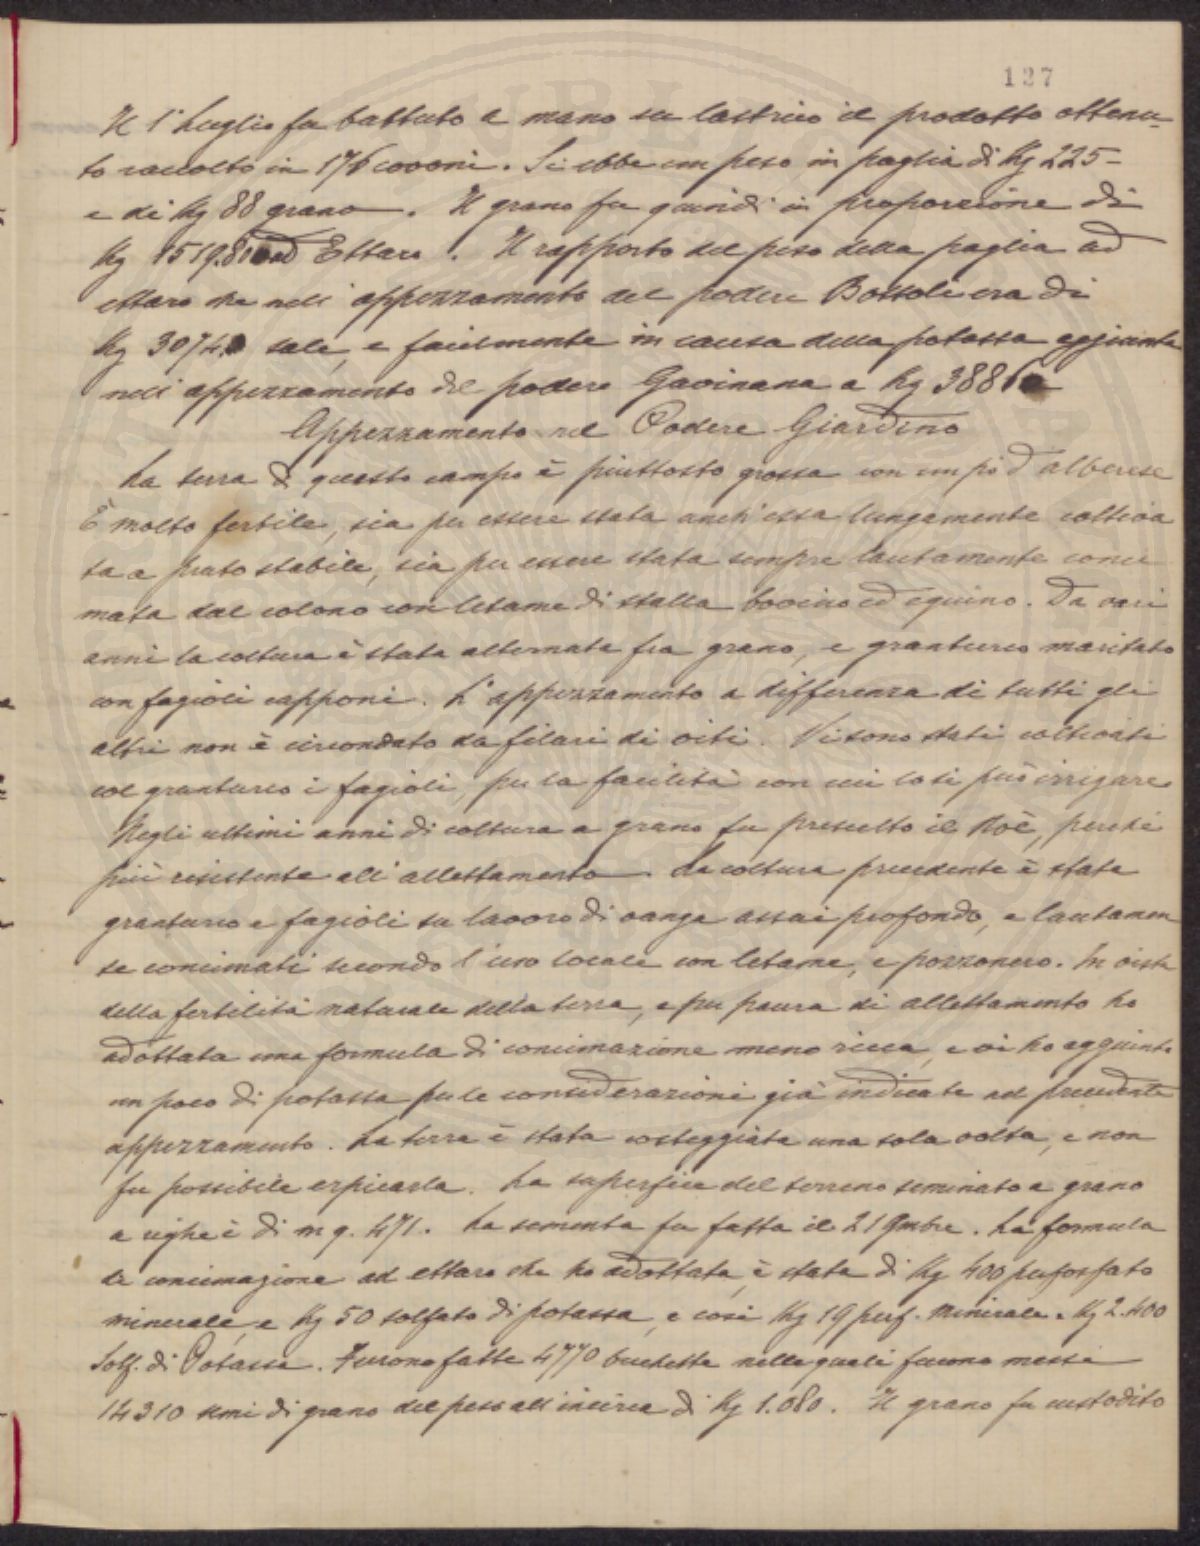 137
Il 1° Luglio fu battuto a mano su lastrico il prodotto ottenu-
to raccolto in 176 covoni. Si ebbe un peso in paglia di Kg 225-
e di Kg 88 grano. Il grano fu quindi in proporzione di
Kg 1519.80 ad Ettaro. Il rapporto del peso della paglia ad
ettaro che nell'appezzamento del podere Bottoli era di
Kg 3074. sale, e facilmente in causa della potassa aggiunta
nell'appezzamento del podere Gavinana a Kg 3886
Appezzamento nel Podere Giardino
La terra di questo campo è piuttosto grossa con un pò d'alberese
È molto fertile, sia per essere stata anch'essa lungamente coltiva
ta a prato stabile, sia per essere stata sempre lautamente conci
mata dal colono con letame di stalla bovino ed equino. Da vari
anni la coltura è stata alternata fra grano, e granturco maritato
con fagioli capponi. L'appezzamento a differenza di tutti gli
altri non è circondato da filari di viti. Vi sono stati coltivati
col granturco i fagioli, per la facilità con cui lo si può irrigare
Negli ultimi anni di coltura a grano fu prescelto il Noè, perchè
più resistente all'allettamento. La coltura precedente è stata
granturco e fagioli su lavoro di vanga assai profondo, e lautamen
te concimati secondo l'uso locale con letame, e pozzonero. In vista
della fertilità naturale della terra, e per paura di allettamento ho
adottata una formula di concimazione meno ricca, e vi ho aggiunto
un poco di potassa per le considerazioni già indicate nel precedente
appezzamento. La terra è stata costeggiata una sola volta, e non
fu possibile erpicarla. La superfice del terreno seminato a grano
a righe è di mq. 471. La sementa fu fatta il 21 9mbre. La formula
di concimazione ad ettaro che ho adottata, è stata di Kg 400 perfosfato
minerale, e Kg 50 solfato di potassa, e così Kg 19 perf. minerale. Kg 2.400
Solf. di Potassa. Furono fatte 4770 buchette nelle quali furono messi
14310 semi di grano del peso all'incirca di Kg 1.080. Il grano fu custodito